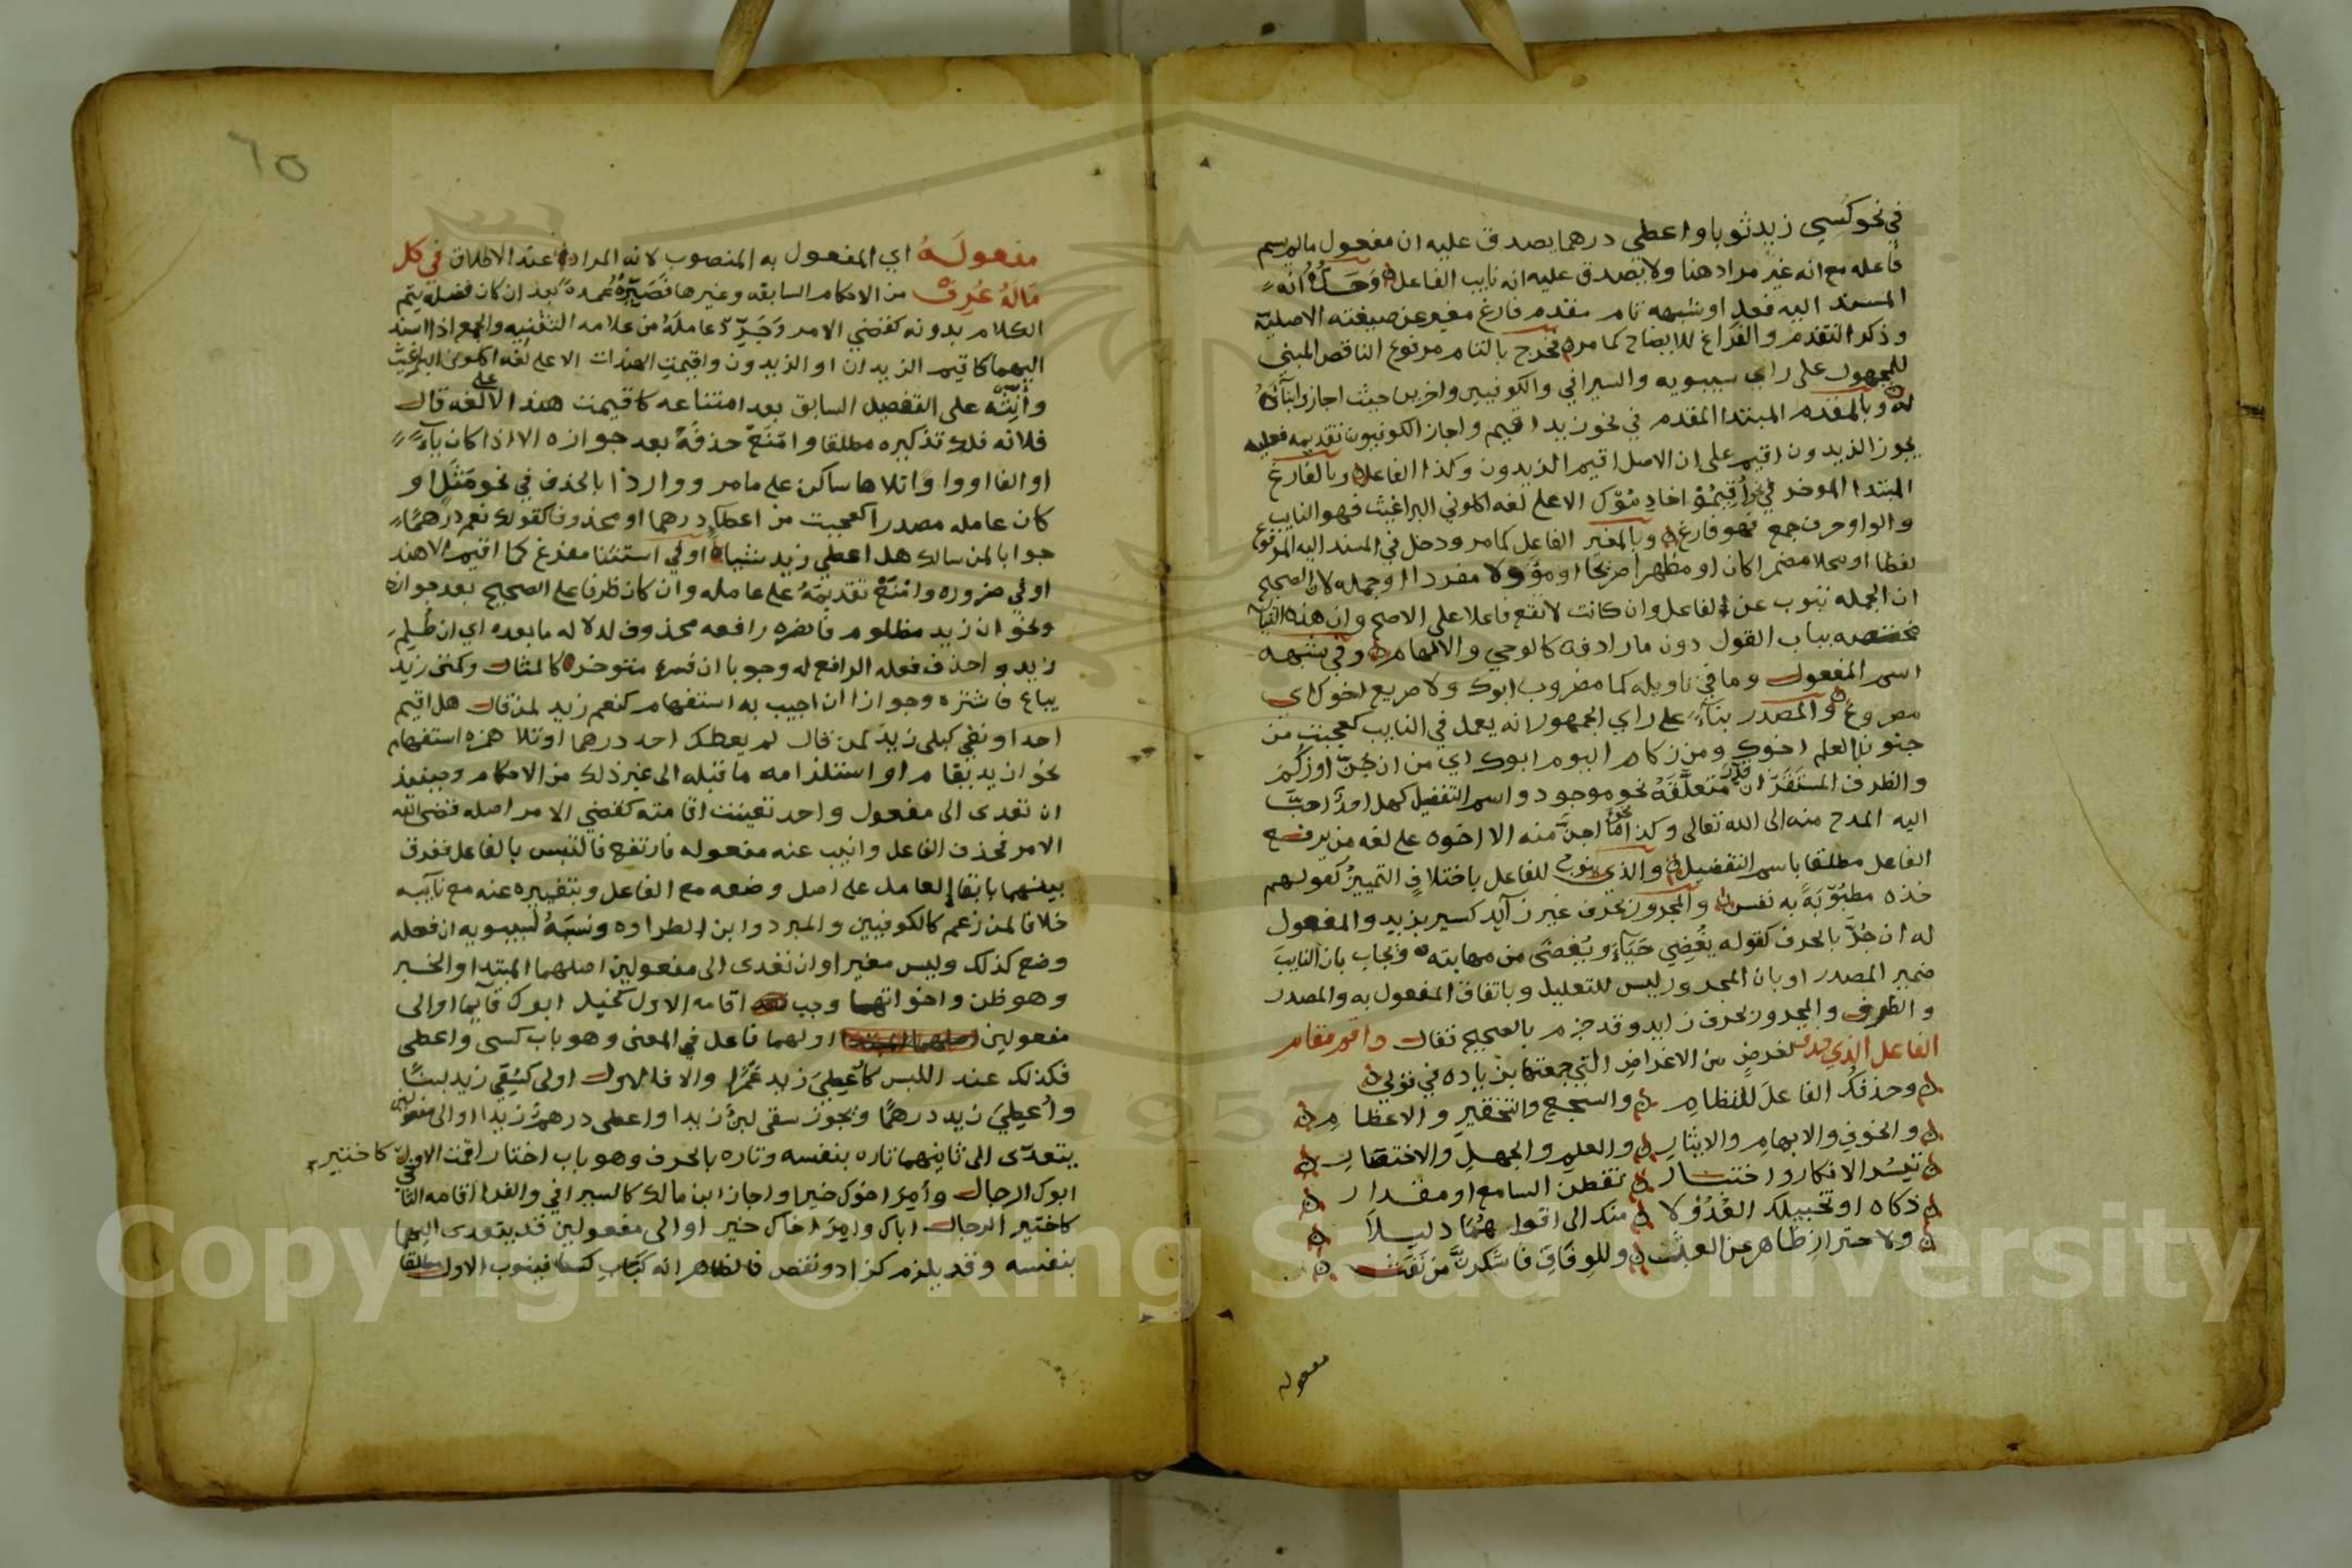 في نحو كُسِي زيد ثوبا واعطي درهما يصدق عليه ان مفعول مالم يسم
فاعله مع انه غير مراد هنا ولا يصدق عليه انه نايب الفاعل وَحَدُّهُ انه
المسند اليه فعل او شبهه تام مقدم فارغ مغير عن صيغته الاصلية
وذكر التقدم والفراغ للايضاح كما مر فخرج بالتام مرفوع الناقص المبني
للمجهول على راي سيبويه والسيرافي والكوفيين واخرين حيث اجازوا
له وبالمقدم المبتدا المقدم في نحو زيد اقيم واجاز الكوفيون تقديمه فعليه
يجوز الزيدون اقيم على ان الاصل اقيم الزيدون وكذا الفاعل وبالفارغ
المبتدا الموخر في الا على لغه اكلوني البراغيث فهو النايب
والواو حرف جمع فهو فارغ وبالمغير الفاعل كما مر ودخل في المسند اليه المرفوع
لفظا او محلا مضمرا كان او مظهرا صريحا او مؤولا مفردا او جمله لان الصحيح
ان الجمله تنوب عن الفاعل وان كانت لا تقع فاعلا على الاصح وان هذه النيابه
مختصه بباب القول دون ما رادفه كالوحي والالهام وفي شبهه
اسم المفعول وما في تاويله كما مضروب ابوك ولا صريع اخوك اي
مصروع والمصدر بنآء على راي الجمهور انه يعمل في النايب كعجبت من
جنون بالعلم اخوك ومن زكام اليوم ابوك اي من ان جُنّ او زُكِمَ
والظرف المستَقَرّ ان قدر متعلَّقَهُ نحو موجود واسم التفضيل كهل احدٌ احبّ
اليه المدح منه الى الله تعالى وكذا نحو ما اجنَّ منه الا اخوه على لغه من يرفع
الفاعل مطلقا باسم التفضيل والذي ينوب للفاعل باختلافٍ التمييزُ كقولهم
خذه مطيُوبَةً به نفس والمجرور بحرف غير زآيد كسير بزيد والمفعول
له ان جُرَّ بالحرف كقوله يُغْضِي حَيَاءً ويُغضَى من مهابته ويجاب بان النايبَ
ضمير المصدر او بان المجرور ليس للتعليل وباتفاق المفعول به والمصدر
والظرف والمجرور بحرف زايد وقد جزم بالصحيح فقال واقم مقام
الفاعل الذي حذف لغرضٍ من الاغراضِ التي جمعتها بزياده في قولي
وحذفكُ الفاعلَ للنظامِ والسجع والتحقيرِ والاعظامِ
والخوفِ والابهامِ والايثارِ والعلمِ والجهلِ والاختصارِ
تيسُّر الانكار واختبار تفطن السامع او مقدار
ذكاه او تخييلك العُدُولا منك الى اقواهُمَا دليلا
ولاحترازِ ظاهر عن العبث وللوِفَاقِ فاشكرنَّ من نَفَث
معموله
٦٥
مفعولَهُ اي المفعول به المنصوب لانه المراد عند الاطلاق في كل
مَالَهُ عُرِفْ من الاحكام السابقه وغيرها فَصَيِّرْهُ عُمدةً بعد ان كان فضله يتم
الكلام بدونه كقضي الامر وَجَرِّدْ عاملَهُ من علامه التثنيه والجمع اذا اسند
اليهما كاقيم الزيدان او الزيدون واقيمت الهندات الا على لغه اكلوني البراغيث
وأنِّثْه على التفصيل السابق بعد امتناعه كاقيمت هند الا على لغه قال
فلانه فلك تذكيره مطلقا وامْنَعْ حذفَهُ بعد جوازه الا اذا كان يآءً
او الفا او واوًا تلاها ساكن على ما مر وواردًا بالحذف في نحو او
كان عامله مصدرا كعجبت من اعطاء درهما او محذوفا كقولك نعم درهمًا
جوابا لمن سالك هل اعطي زيد شيأ او في استثنا مفرغ كما اقيم الا هند
او في ضروره وامْنَعْ تقديمَهُ على عامله وان كان ظرفا على الصحيح بعد جوازه
ونحو ان زيد مظلوم فانصره رافعه محذوف لدلاله ما بعده اي ان ظُلِمَ
زيد واحذف فعله الرافع له وجوبا ان فسره متوخر كالمثال وكمتى زيد
يباع فاشتره وجوازا ان اجيب به استفهام كنعم زيد لمن قال هل اقيم
احد او نفي كبلى زيد لمن قال لم يعطك احد درهما او تلا همزه استفهام
نحو ازيد يقام او استلزامه ما قبله الى غير ذلك من الاحكام وحينيذ
ان تعدى الى مفعول واحد تعينت اقامته كقضي الامر اصله قضى الله
الامر فحذف الفاعل وانيب عنه مفعوله فارتفع فالتبس بالفاعل ففرق
بينهما بابقآ العامل على اصل وضعه مع الفاعل وبتغييره عنه مع نآيبه
خلافا لمن زعم كالكوفيين والمبرد وابن الطراوه ونسَبَهُ لسيبويه ان فعله
وضع كذلك وليس مغيرا وان تعدى الى مفعولين اصلهما المبتدا والخبر
وهو ظن واخواتها وجب اقامه الاول كخيل ابوك قآيما او الى
مفعولين اصلهما المبتدا اولهما فاعل في المعنى وهو باب كسى واعطى
فكذلك عند اللبس كأُعطِيَ زيد عَمْرًا والا فالاول اولى كسُقِي زيد لبنًا
وأُعطِيَ زيد درهمًا ويجوز سقى لبنٌ زيدا واعطى درهمٌ زيدا او الى مفعولين
يتعدّى الى ثانيهما تاره بنفسه وتاره بالحرف وهو باب اختار اقمت الاول كاختير
ابوك الرجال وأُمِرَ اخوك خيرا واجاز ابن مالك كالسيرافي والفرا اقامه الثاني
كاختير الرجال اباك وامِرَ اخاك خير او الى مفعولين قد يتعدى اليهما
بنفسه وقد يلزم كزاد ونقص فالظاهر انه كبَابِ كسا فينوب الاول مطلقا
Copyright © King Saud University
1957